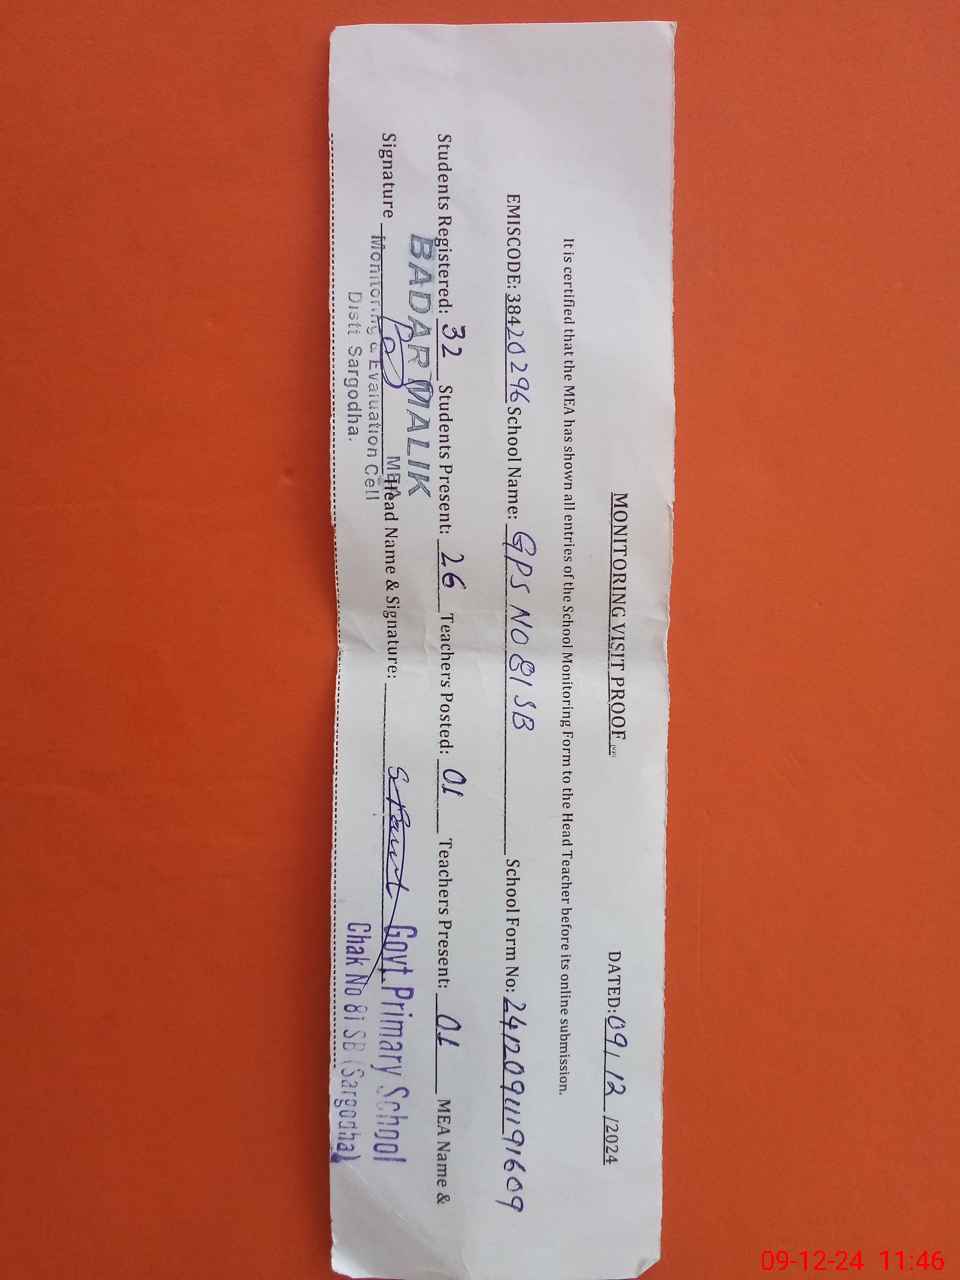 MONITORING VISIT PROOF
DATED: 09/12/2024
It is certified that the MEA has shown all entries of the School Monitoring Form to the Head Teacher before its online submission.
EMISCODE: 38420296 School Name: GPS NO 81 SB School Form No: 24120911191609
Students Registered: 32 Students Present: 26 Teachers Posted: 01 Teachers Present: 01 MEA Name &
Signature Head Name & Signature:
BADAR MALIK
MEA
Monitoring & Evaluation Cell
Distt Sargodha.
Govt Primary School
Chak No 81 SB (Sargodha)
09-12-24 11:46